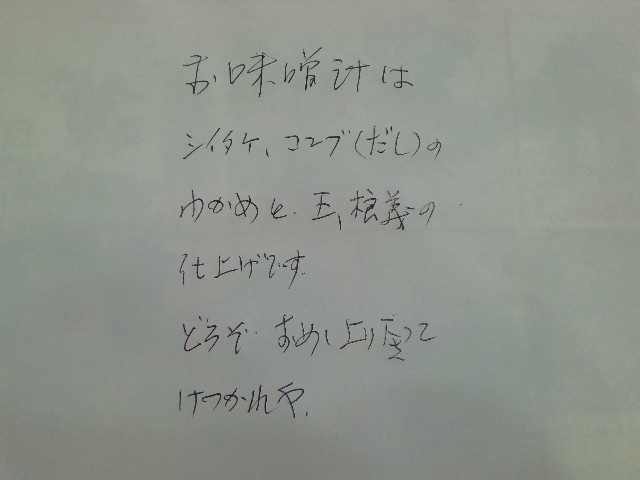 お味噌汁は
シイタケ、コンブ(だし)の
わかめと、玉根義の
仕上げです。
どうぞ、すめし上り下さって
けつかれや。